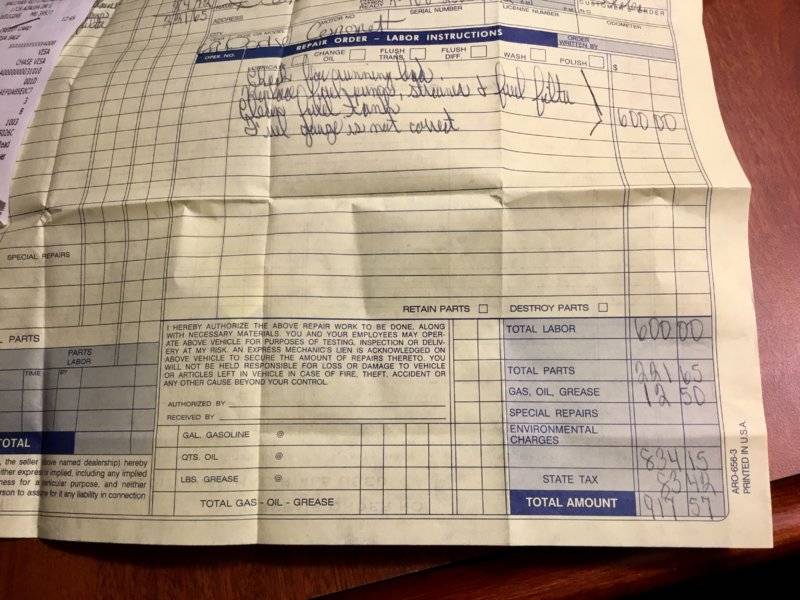 VISA
CHASE VISA
ADDRESS
MOTOR NO.
SERIAL NUMBER
LICENSE NUMBER
ODOMETER
Coronet
REPAIR ORDER – LABOR INSTRUCTIONS
ORDER WRITTEN BY
OPER. NO.
CHANGE OIL
FLUSH TRANS.
FLUSH DIFF.
WASH
POLISH
$
Check for running bad.
fuel pump, strainer & fuel filter
Clean fuel tank
Fuel gauge is not correct
600 00
SPECIAL REPAIRS
RETAIN PARTS
DESTROY PARTS
PARTS
PARTS
LABOR
TIME
BY
TOTAL
I HEREBY AUTHORIZE THE ABOVE REPAIR WORK TO BE DONE, ALONG
WITH NECESSARY MATERIALS. YOU AND YOUR EMPLOYEES MAY OPER-
ATE ABOVE VEHICLE FOR PURPOSES OF TESTING, INSPECTION OR DELIV-
ERY AT MY RISK. AN EXPRESS MECHANIC'S LIEN IS ACKNOWLEDGED ON
ABOVE VEHICLE TO SECURE THE AMOUNT OF REPAIRS THERETO. YOU
WILL NOT BE HELD RESPONSIBLE FOR LOSS OR DAMAGE TO VEHICLE
OR ARTICLES LEFT IN VEHICLE IN CASE OF FIRE, THEFT, ACCIDENT OR
ANY OTHER CAUSE BEYOND YOUR CONTROL.
AUTHORIZED BY
RECEIVED BY
GAL. GASOLINE @
QTS. OIL @
LBS. GREASE @
TOTAL GAS - OIL - GREASE
TOTAL LABOR 600 00
TOTAL PARTS 221 65
GAS, OIL, GREASE 12 50
SPECIAL REPAIRS
ENVIRONMENTAL
CHARGES
834 15
STATE TAX 83 42
TOTAL AMOUNT 917 57
, the seller above named dealership) hereby
either express implied, including any implied
ness for a particular purpose, and neither
person to assume for it any liability in connection
ARO-656-3
PRINTED IN U.S.A.